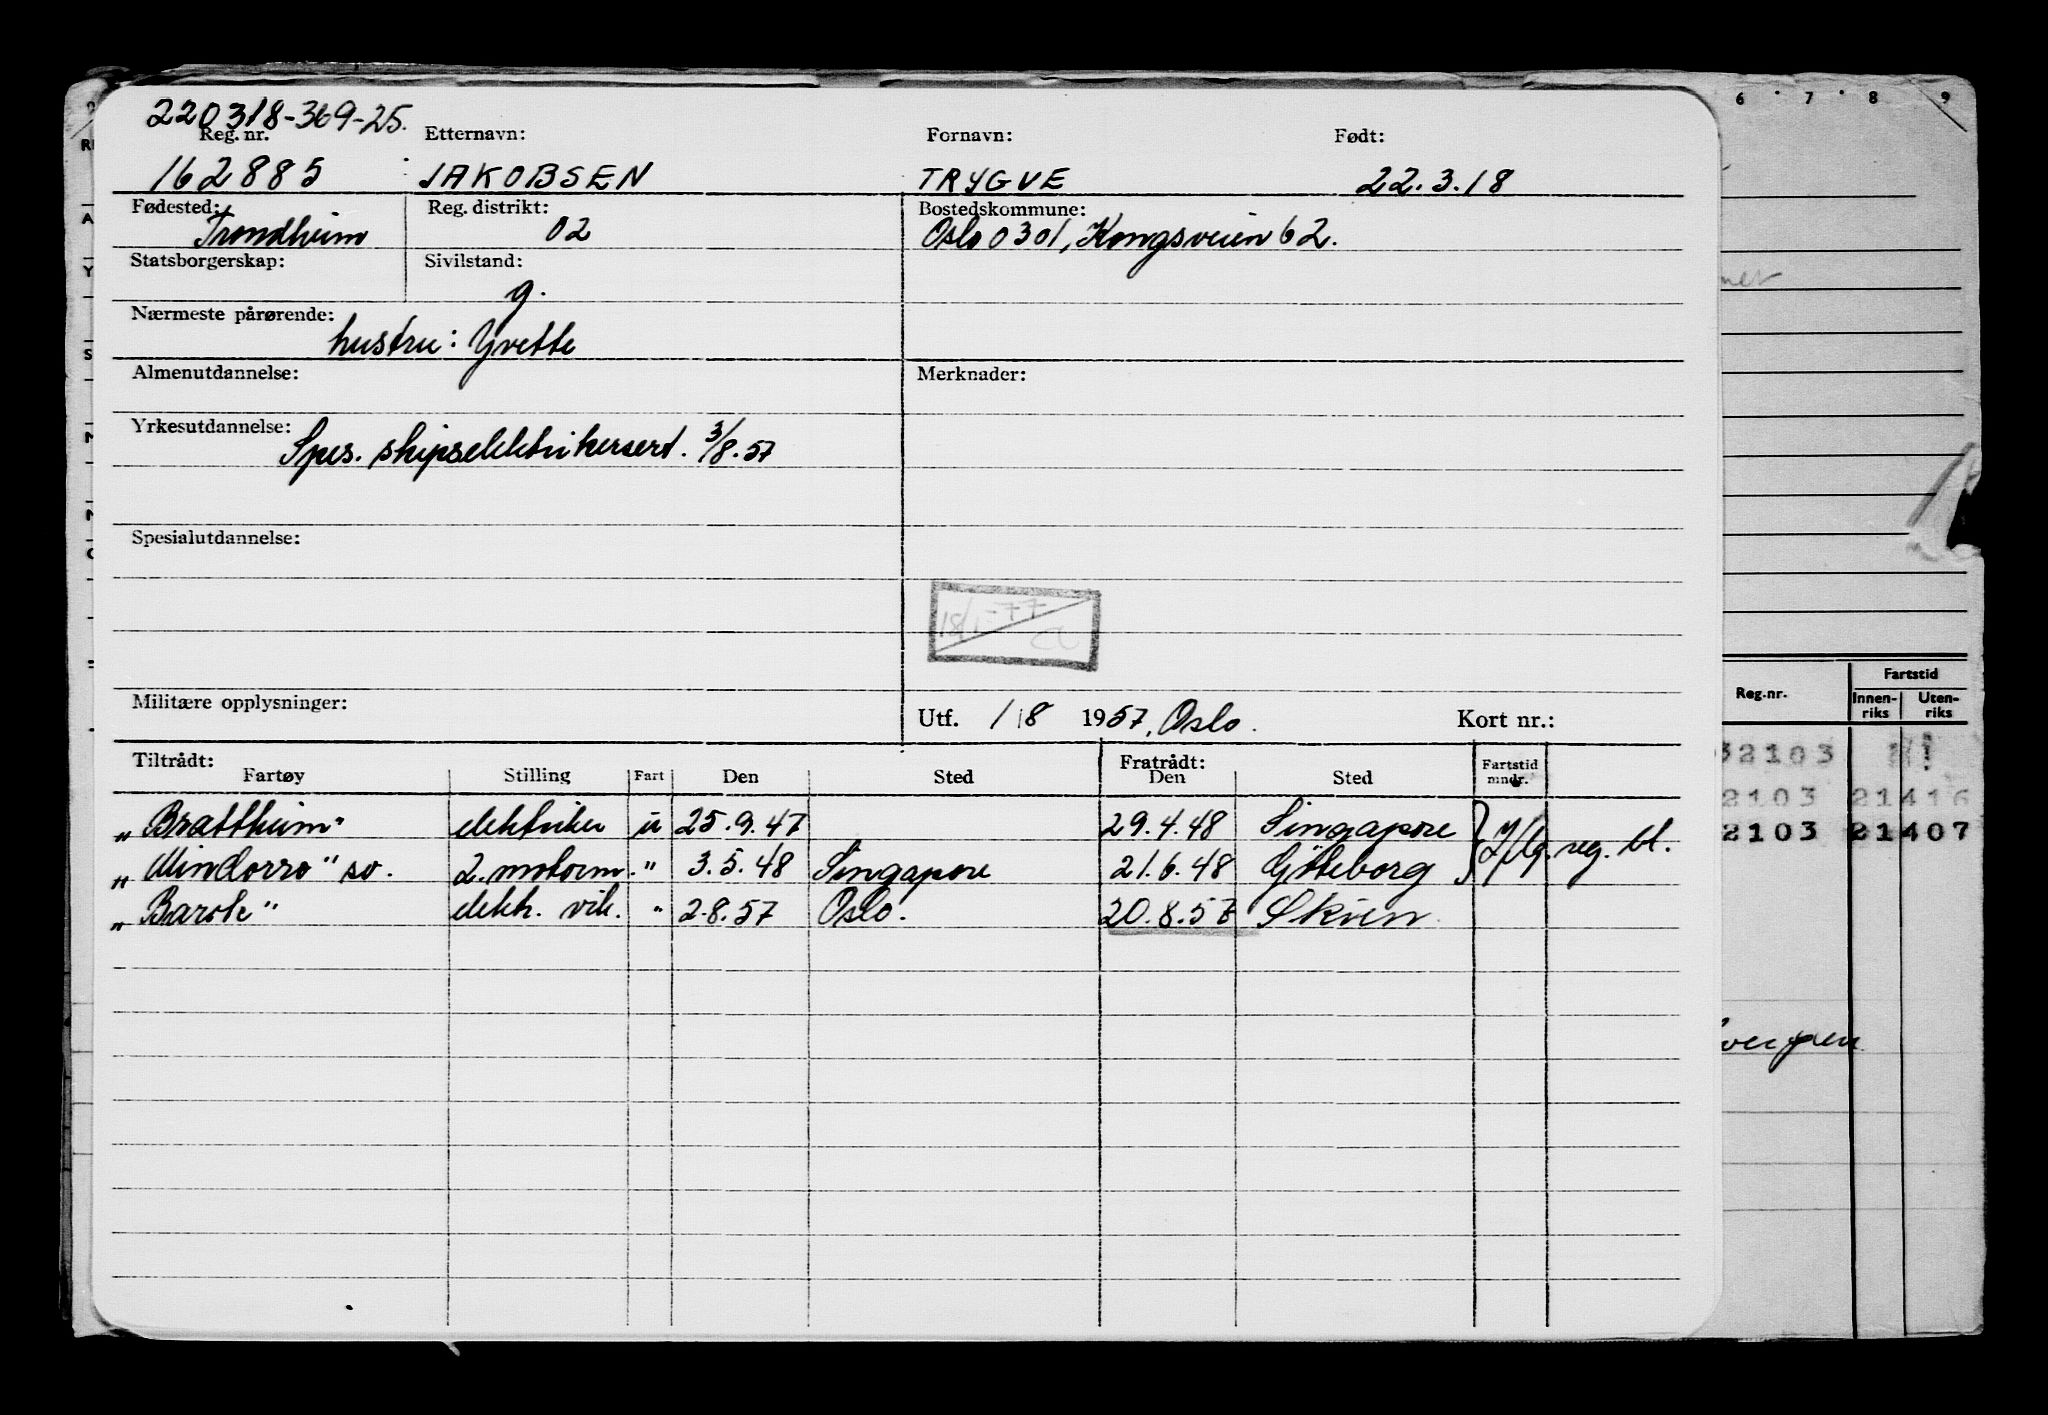 220318-369-25.
Reg. nr. Etternavn: Fornavn: Født:
162885 JAKOBSEN TRYGVE 22.3.18
Fødested: Reg. distrikt: Bostedskommune:
Trondheim 02 Oslo 0301, Kongsveien 62.
Statsborgerskap: Sivilstand:
g.
Nærmeste pårørende:
hustru: Yvette
Almenutdannelse: Merknader:
Yrkesutdannelse:
Spes. skipselektrikersert. 3/8.57
Spesialutdannelse:
18/1-77
Militære opplysninger:
Utf. 1/8 1957, Oslo. Kort nr.:
Tiltrådt: Fratrådt: Fartstid
Fartøy Stilling Fart Den Sted Den Sted mndr.
"Brattheim" elektriker u 25.9.47 29.4.48 Singapore
"Mindorro" so. 2. motorm. " 3.5.48 Singapore 21.6.48 Göteborg
reg. bl.
"Barok" elektr. vik. " 2.8.57 Oslo. 20.8.57 Skien
6 7 8 9
Fartstid
Reg.nr. Innen- Uten-
riks riks
2103
2103 21416
2103 21407